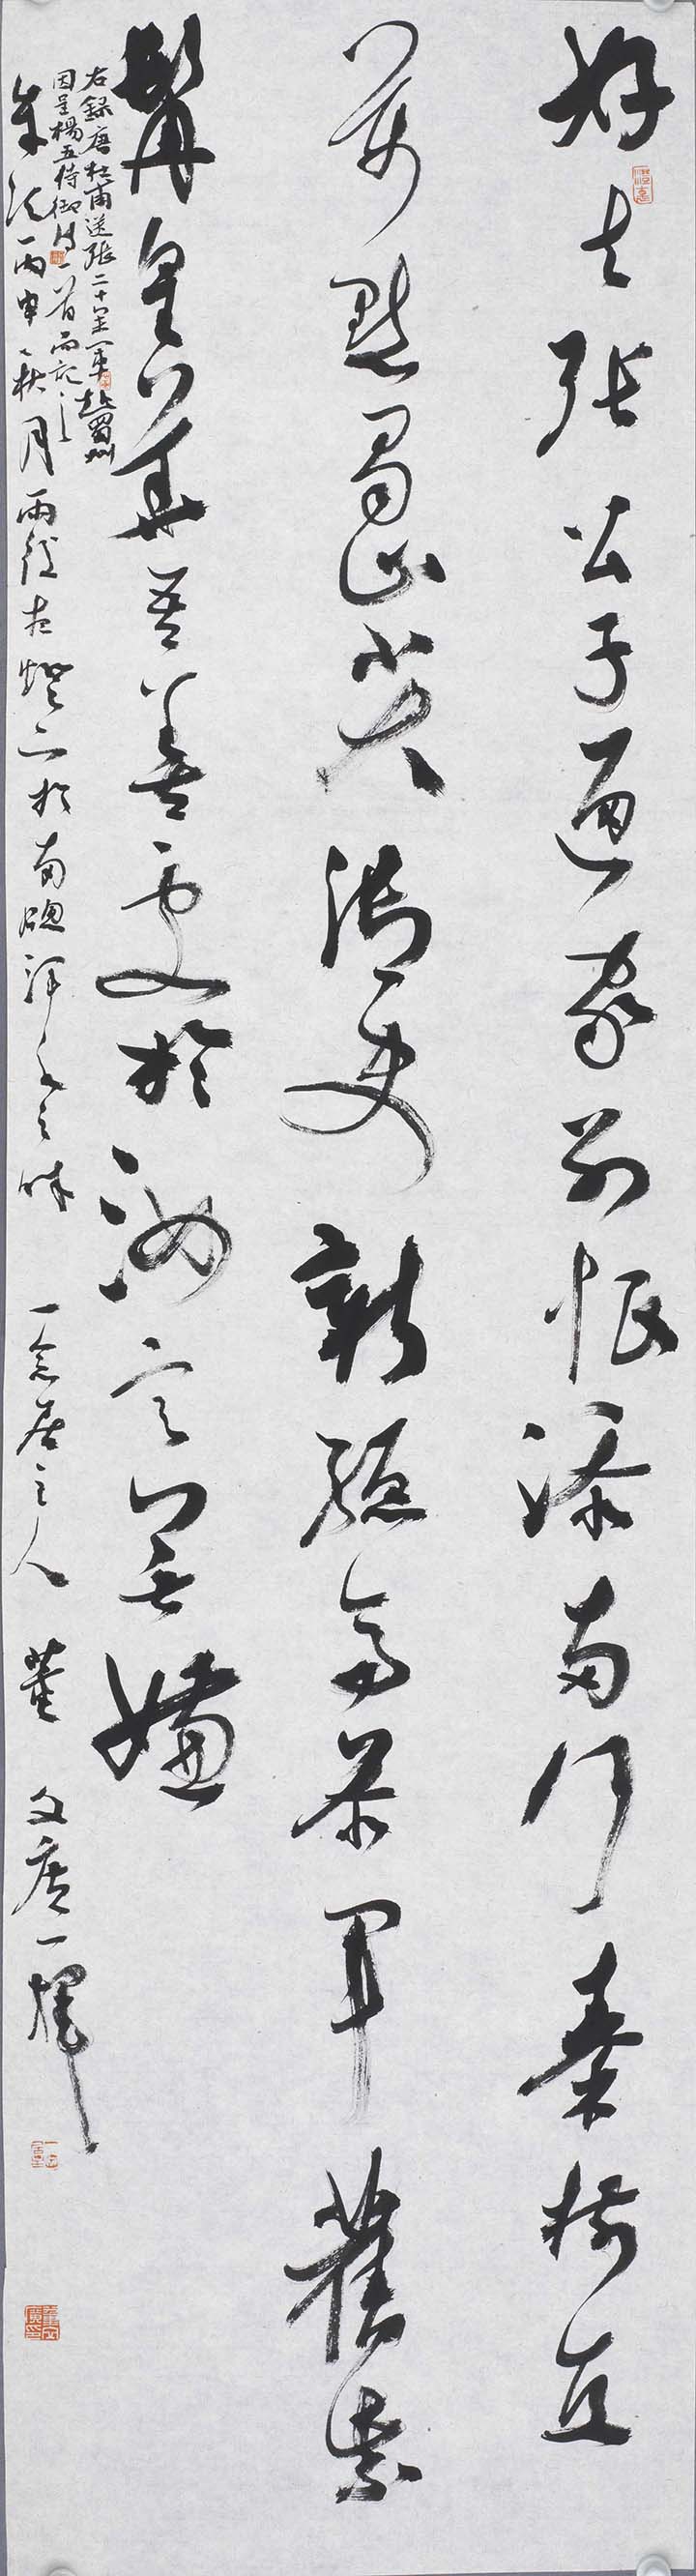 好去張公子通家別恨添兩行秦樹直
萬點蜀山尖御史新驄馬參軍舊紫
髯皇華吾善處於汝定無嫌
右錄唐杜甫送張二十參軍赴蜀州
因呈楊五侍御詩一首而記之
歲次丙申秋月雨後夜燈下於南窗 一念居主人 董文廣一揮